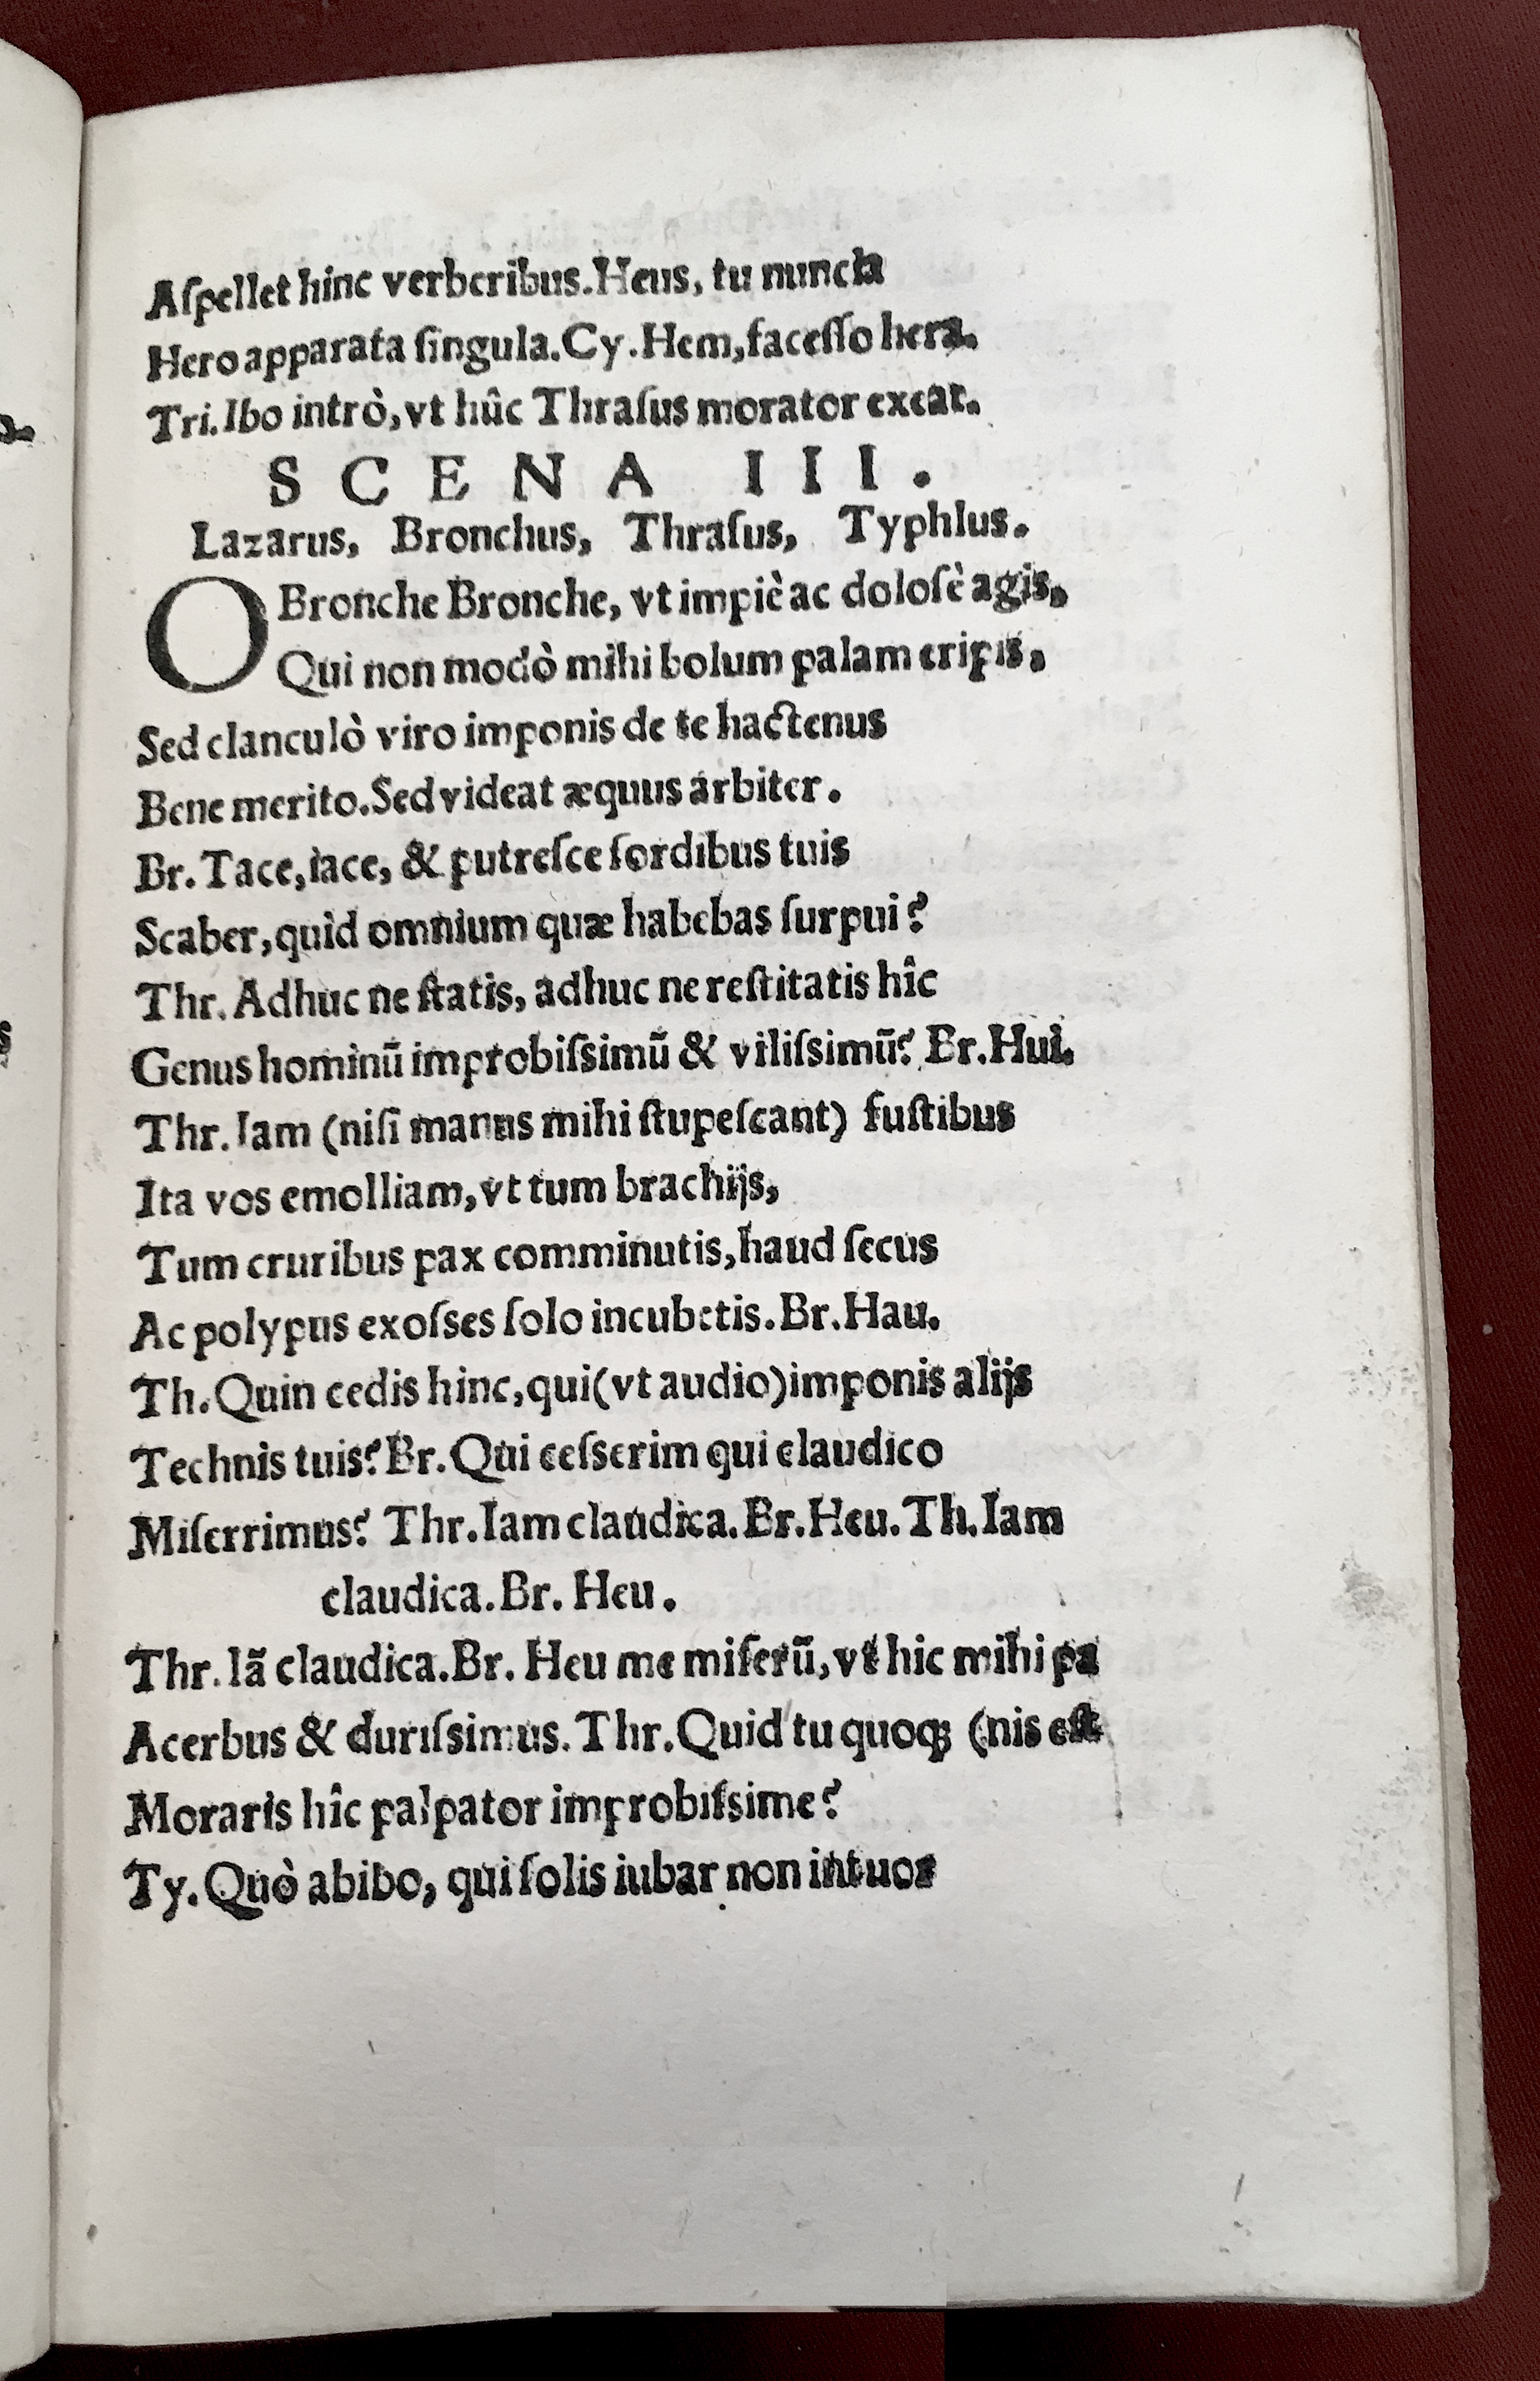 Aſpellet hinc verberibus. Heus, tu nuncia
Hero apparata ſingula. Cy. Hem, faceſſo hera.
Tri. Ibo intrò, vt hûc Thraſus morator exeat.
SCENA III.
Lazarus, Bronchus, Thraſus, Typhlus.
O Bronche Bronche, vt impiè ac doloſè agis,
Qui non modò mihi bolum palam eripis,
Sed clanculò viro imponis de te hactenus
Bene merito. Sed videat æquus arbiter.
Br. Tace, iace, & putreſce ſordibus tuis
Scaber, quid omnium quæ habebas ſurpui?
Thr. Adhuc ne ſtatis, adhuc ne reſtitatis hîc
Genus hominū improbiſsimū & viliſsimū? Br. Hui.
Thr. Iam (niſi manus mihi ſtupeſcant) fuſtibus
Ita vos emolliam, vt tum brachijs,
Tum cruribus pax comminutis, haud ſecus
Ac polypus exoſses ſolo incubetis. Br. Hau.
Th. Quin cedis hinc, qui (vt audio) imponis alijs
Technis tuis? Br. Qui ceſserim qui claudico
Miſerrimus? Thr. Iam claudica. Br. Heu. Th. Iam
claudica. Br. Heu.
Thr. Iã claudica. Br. Heu me miſerū, vt hic mihi pa
Acerbus & duriſsimus. Thr. Quid tu quoqꝫ (nis eſt
Moraris hîc palpator improbiſsime?
Ty. Quò abibo, qui ſolis iubar non intuor